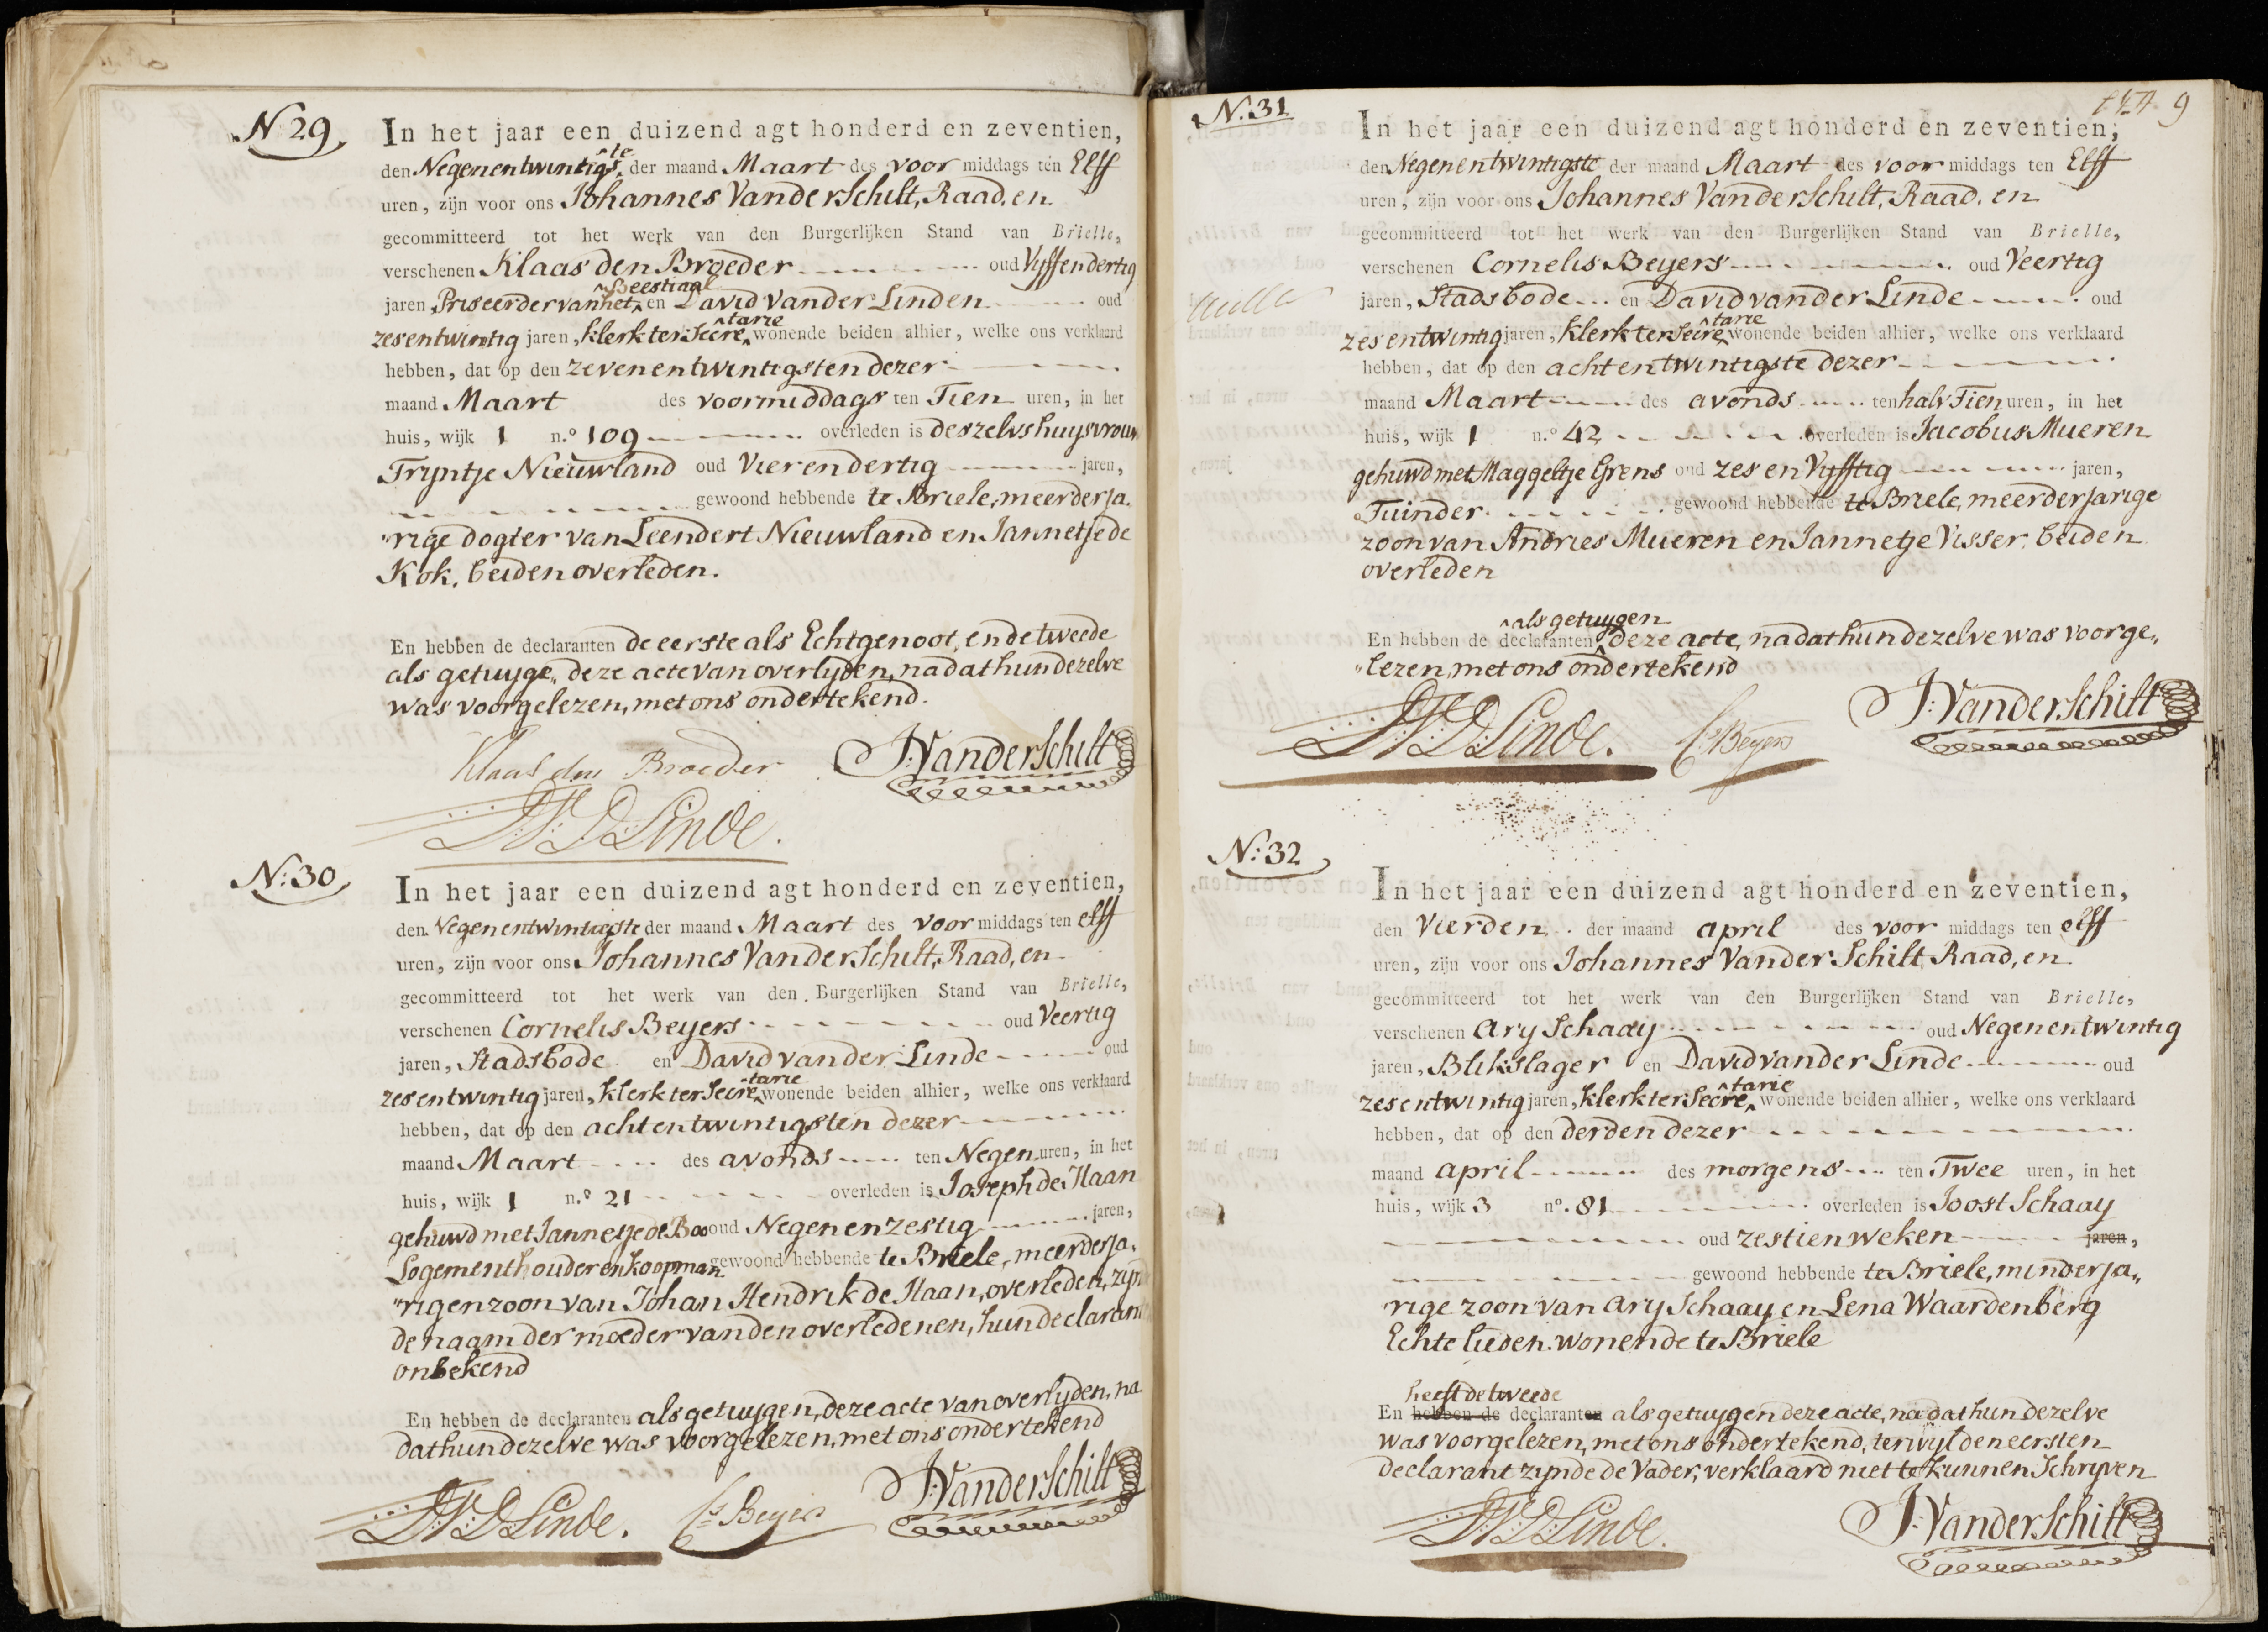 N. 29
In het jaar een duizend agt honderd en zeventien,
den Negenentwintigste der maand Maart des voor middags ten Elff
uren, zijn voor ons Johannes Vander Schilt, Raad, en
gecommitteerd tot het werk van den Burgerlijken Stand van Brielle,
verschenen Klaas den Broeder oud Vyffendertig
jaren, Priseerder van het Beestiaal en David vander Linden oud
zesentwintig jaren, Klerk ter Secretarie wonende beiden alhier, welke ons verklaard
hebben, dat op den zevenentwintigsten dezer
maand Maart des voormiddags ten Tien uren, in het
huis, wijk 1 n.º 109 overleden is deszelvs huysvrouw
Tryntje Nieuwland oud Vierendertig jaren,
gewoond hebbende te Briele, meerderja-
"rige dogter van Leendert Nieuwland en Jannetje de
Kok, beiden overleden.
En hebben de declaranten de eerste als Echtgenoot, en de tweede
als getuyge, deze acte van overlyden, nadat hun dezelve
was voorgelezen, met ons ondertekend.
Klaas den Broeder J: Vander Schilt
D: V: D: Linde.
N: 30
In het jaar een duizend agt honderd en zeventien,
den Negenentwintigste der maand Maart des voor middags ten elff
uren, zijn voor ons Johannes Vander Schilt, Raad, en
gecommitteerd tot het werk van den Burgerlijken Stand van Brielle,
verschenen Cornelis Beyers oud Veertig
jaren, Stadsbode en David vander Linde oud
zesentwintig jaren, Klerk ter Secretarie wonende beiden alhier, welke ons verklaard
hebben, dat op den achtentwintigsten dezer
maand Maart des avonds ten Negen uren, in het
huis, wijk 1 n.º 21 overleden is Joseph de Haan
gehuwd met Jannetje de Boo oud Negenenzestig jaren,
Logementhouder en Koopman gewoond hebbende te Briele, meerderja-
"rigen zoon van Johan Hendrik de Haan, overleden, zijn
de naam der moeder van den overledenen, hun declarant
onbekend
En hebben de declaranten als getuygen, deze acte van overlyden, na
dat hun dezelve was voorgelezen, met ons ondertekend
D: V: D: Linde. Cs Beyers J: Vander Schilt
N. 31
9
In het jaar een duizend agt honderd en zeventien,
den Negenentwintigste der maand Maart des voor middags ten Elff
uren, zijn voor ons Johannes Vander Schilt, Raad, en
gecommitteerd tot het werk van den Burgerlijken Stand van Brielle,
verschenen Cornelis Beyers oud Veertig
jaren, Stadsbode en David vander Linde oud
zesentwintig jaren, Klerk ter Secretarie wonende beiden alhier, welke ons verklaard
hebben, dat op den achtentwintigste dezer
maand Maart des avonds ten halv Tien uren, in het
huis, wijk 1 n.º 42 overleden is Jacobus Mueren
gehuwd met Maggeltje Grens oud zes en Vyfftig jaren,
Tuinder gewoond hebbende te Briele, meerderjarige
zoon van Andries Mueren en Jannetje Visser, beiden
overleden
En hebben de declaranten als getuygen deze acte, nadat hun dezelve was voorge„
"lezen, met ons ondertekend
D: V: D: Linde. Cs Beyers J: Vander Schilt
N: 32
In het jaar een duizend agt honderd en zeventien,
den Vierden der maand april des voor middags ten elff
uren, zijn voor ons Johannes Vander Schilt Raad, en
gecommitteerd tot het werk van den Burgerlijken Stand van Brielle,
verschenen Ary Schaay oud Negenentwintig
jaren, Blikslager en David vander Linde oud
zesentwintig jaren, Klerk ter Secretarie wonende beiden alhier, welke ons verklaard
hebben, dat op den derden dezer
maand april des morgens ten Twee uren, in het
huis, wijk 3 nº. 81 overleden is Joost Schaay
oud zestien weken jaren,
gewoond hebbende te Briele, minderja„
rige zoon van Ary Schaay en Lena Waardenberg
Echte lieden, wonende te Briele
heeft de tweede
En hebben de declaranten als getuygen deze acte, nadat hun dezelve
was voorgelezen, met ons ondertekend, terwyl den eersten
declarant zynde de Vader, verklaard niet te kunnen Schryven
D: V: D: Linde. J: Vander Schilt